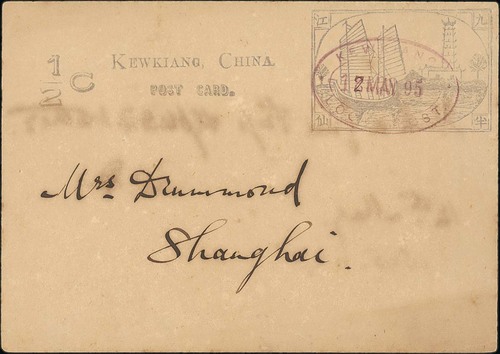 ½ C
KEWKIANG, CHINA.
POST CARD.
江 九
KEWKIANG
12 MAY 95
LOCAL POST
仙 半
Mrs Drummond
Shanghai.